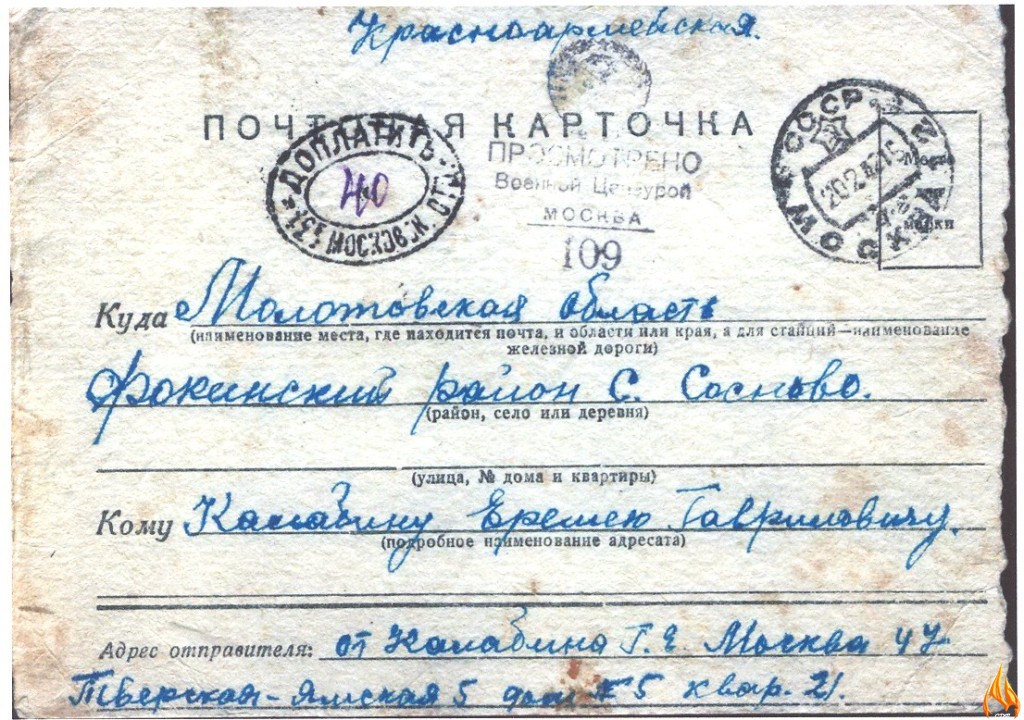 Красноармейская.
ПОЧТОВАЯ КАРТОЧКА
ДОПЛАТИТЬ
40
МОСКВА
ПРОСМОТРЕНО
Военной Цензурой
МОСКВА
109
СССР
20.2.42
МОСКВА
Место
марки
Куда Молотовская область
(наименование места, где находится почта, и области или края, а для станций—наименование
железной дороги)
Фокинский район С. Сосново.
(район, село или деревня)
(улица, № дома и квартиры)
Кому Калабину Еремею Гавриловичу.
(подробное наименование адресата)
Адрес отправителя: от Калабина Г. Е. Москва 47
Тверская-Ямская 5 дом № 5 квар. 21.